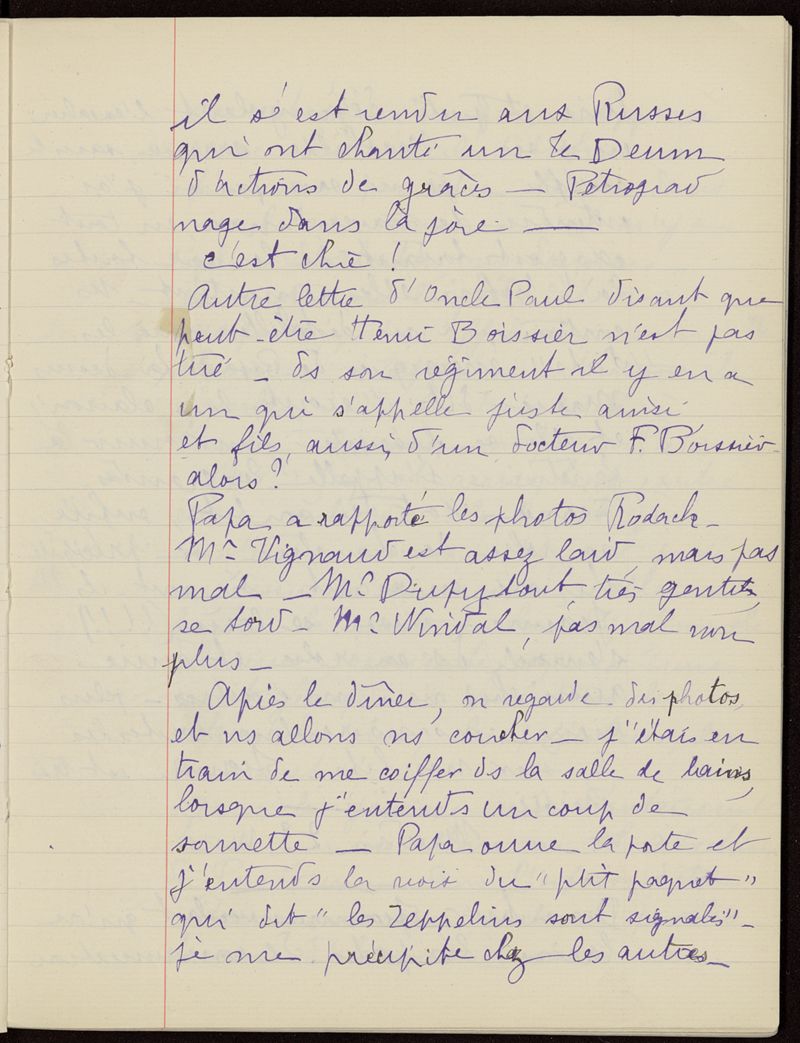 il s'est rendu aux Russes
qui ont chanté un Te Deum
d'actions de grâces — Petrograd
nage dans la joie —
c'est chic !
Autre lettre d'Oncle Paul disant que
peut-être Henri Boissier n'est pas
tué — ds son régiment il y en a
un qui s'appelle juste ainsi
et fils, aussi, d'un docteur F. Boissier
alors ?
Papa a rapporté les photos Kodack —
Mr Vignaud est assez laid, mais pas
mal — Mr Dupuytout, très gentil,
se tord — Mr Windal, pas mal non
plus —
Après le dîner, on regarde des photos
et ns allons ns coucher — j'étais en
train de me coiffer ds la salle de bains,
lorsque j'entends un coup de
sonnette — Papa ouvre la porte et
j'entends la voix du "ptit paquet"
qui dit "les Zeppelins sont signalés" —
je me précipite chez les autres —